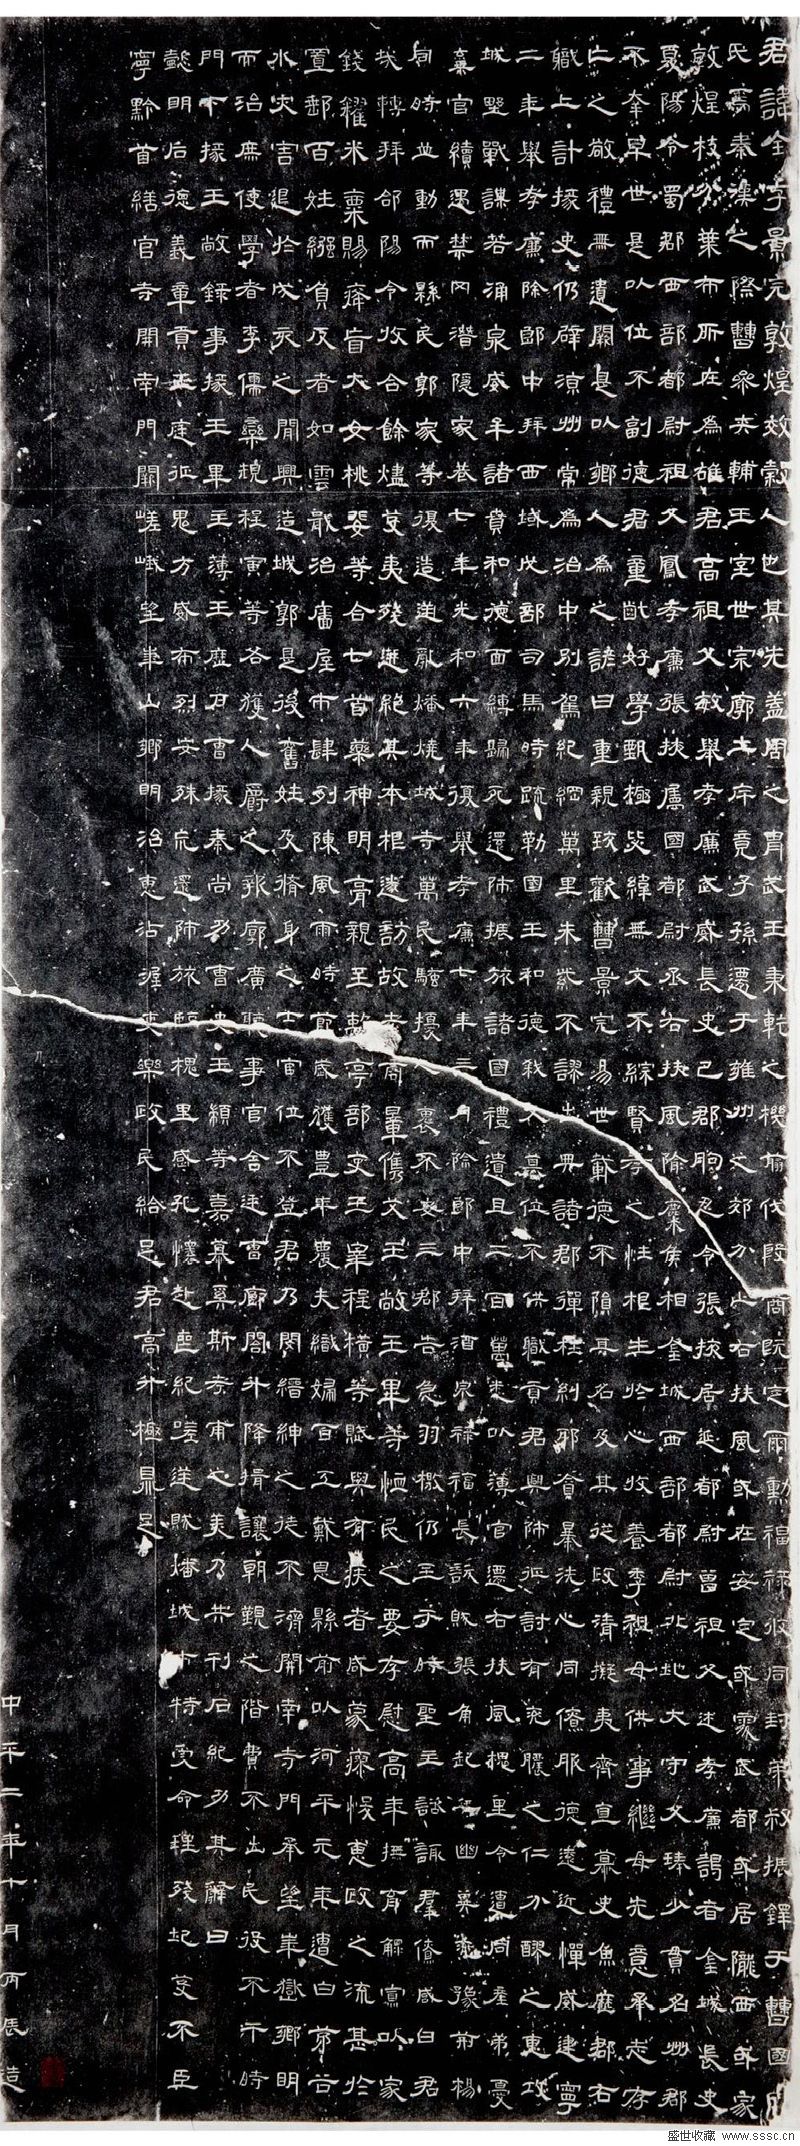 君諱全字景完敦煌效穀人也其先蓋周之冑武王秉乾之機翦伐殷商既定爾勳福祿攸同封弟叔振鐸于曹國因
氏焉秦漢之際曹參夾輔王室世宗廓土斥竟子孫遷于雍州之郊分止右扶風或在安定或處武都或居隴西或家
敦煌枝分葉布所在為雄君高祖父敏舉孝廉武威長史巴郡朐忍令張掖居延都尉曾祖父述孝廉謁者金城長史
夏陽令蜀郡西部都尉祖父鳳孝廉張掖屬國都尉丞右扶風隃麋侯相金城西部都尉北地大守父琫少貫名州郡
不幸早世是以位不副德君童齔好學甄極毖緯無文不綜賢孝之性根生於心收養季祖母供事繼母先意承志存
亡之敬禮無遺闕是以鄉人為之諺曰重親致歡曹景完易世載德不隕其名及其從政清擬夷齊直慕史魚歷郡右
職上計掾史仍辟涼州常為治中別駕紀綱萬里朱紫不謬出典諸郡彈枉糾邪貪暴洗心同僚服德遠近憚威建寧
二年舉孝廉除郎中拜西域戊部司馬時疏勒國王和德弒父篡位不供職貢君興師征討有兗膿之仁分醪之惠攻
城野戰謀若涌泉威牟諸賁和德面縛歸死還師振旅諸國禮遺且二百萬悉以薄官遷右扶風槐里令遭同產弟憂
棄官續遇禁冈潛隱家巷七年光和六年復舉孝廉七年三月除郎中拜酒泉祿福長訞賊張角起兵幽冀兗豫荊楊
同時並動而縣民郭家等復造逆亂燔燒城寺萬民騷擾人裹不安三郡告急羽檄仍至于時聖主諮諏群僚咸曰君
哉轉拜郃陽令收合餘燼芟夷殘迸絕其本根遂訪故老商量儁艾王敞王畢等恤民之要存慰高年撫育鰥寡以家
錢糴米粟賜癃盲大女桃婓等合七首藥神明膏親至離亭部吏王皋程橫等賦與有疾者咸蒙瘳悛惠政之流甚於
置郵百姓繦負反者如雲戢治廧屋市肆列陳風雨時節歲獲豐年農夫織婦百工戴恩縣前以河平元年遭白茅谷
水灾害退於戊亥之間興造城郭是後舊姓及脩身之士官位不登君乃閔縉紳之徒不濟開南寺門承望華嶽鄉明
而治庶使學者李儒欒規程寅等各獲人爵之報廓廣聽事官舍廷曹廊閣升降揖讓朝覲之階費不出民役不干時
門下掾王敞錄事掾王畢主薄王歷戶曹掾秦尚功曹史王顓等嘉慕奚斯考甫之美乃共刊石紀功其辭曰
懿明后德義章貢王庭征鬼方威布烈安殊荒還師旅臨槐里感孔懷赴喪紀嗟逆賊燔城市特受命理殘圮芟不臣
寧黔首繕官寺開南門闕嵯峨望華山鄉明治惠沾渥吏樂政民給足君高升極鼎足
中平二年十月丙辰造
盛世收藏 www.sssc.cn